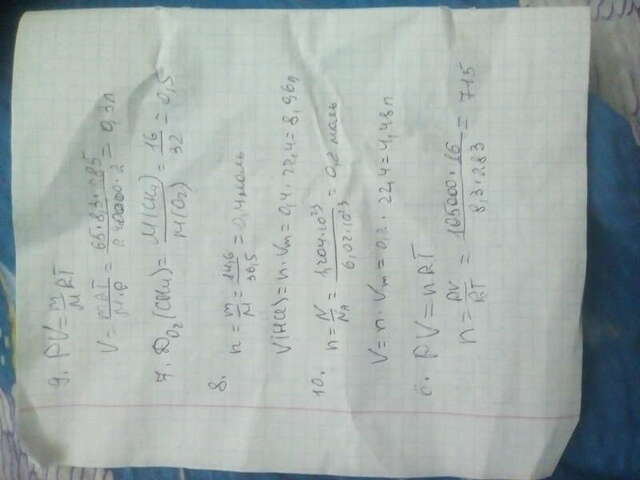 9. PV = m/M RT
V = mRT/M·P = 65·8,3·285/2 40000·2 = 0,3л
7. D_O₂(CH₄) = M(CH₄)/M(O₂) = 16/32 = 0,5
8.
n = m/M = 14,6/36,5 = 0,4 моль
V(HCl) = n·Vm = 0,4·22,4 = 8,96л
10. n = N/N_A = 1,204·10²³/6,02·10²³ = 0,2 моль
V = n·Vm = 0,2·22,4 = 4,48л
PV = nRT
n = PV/RT = 105000·16/8,3·283 = 715